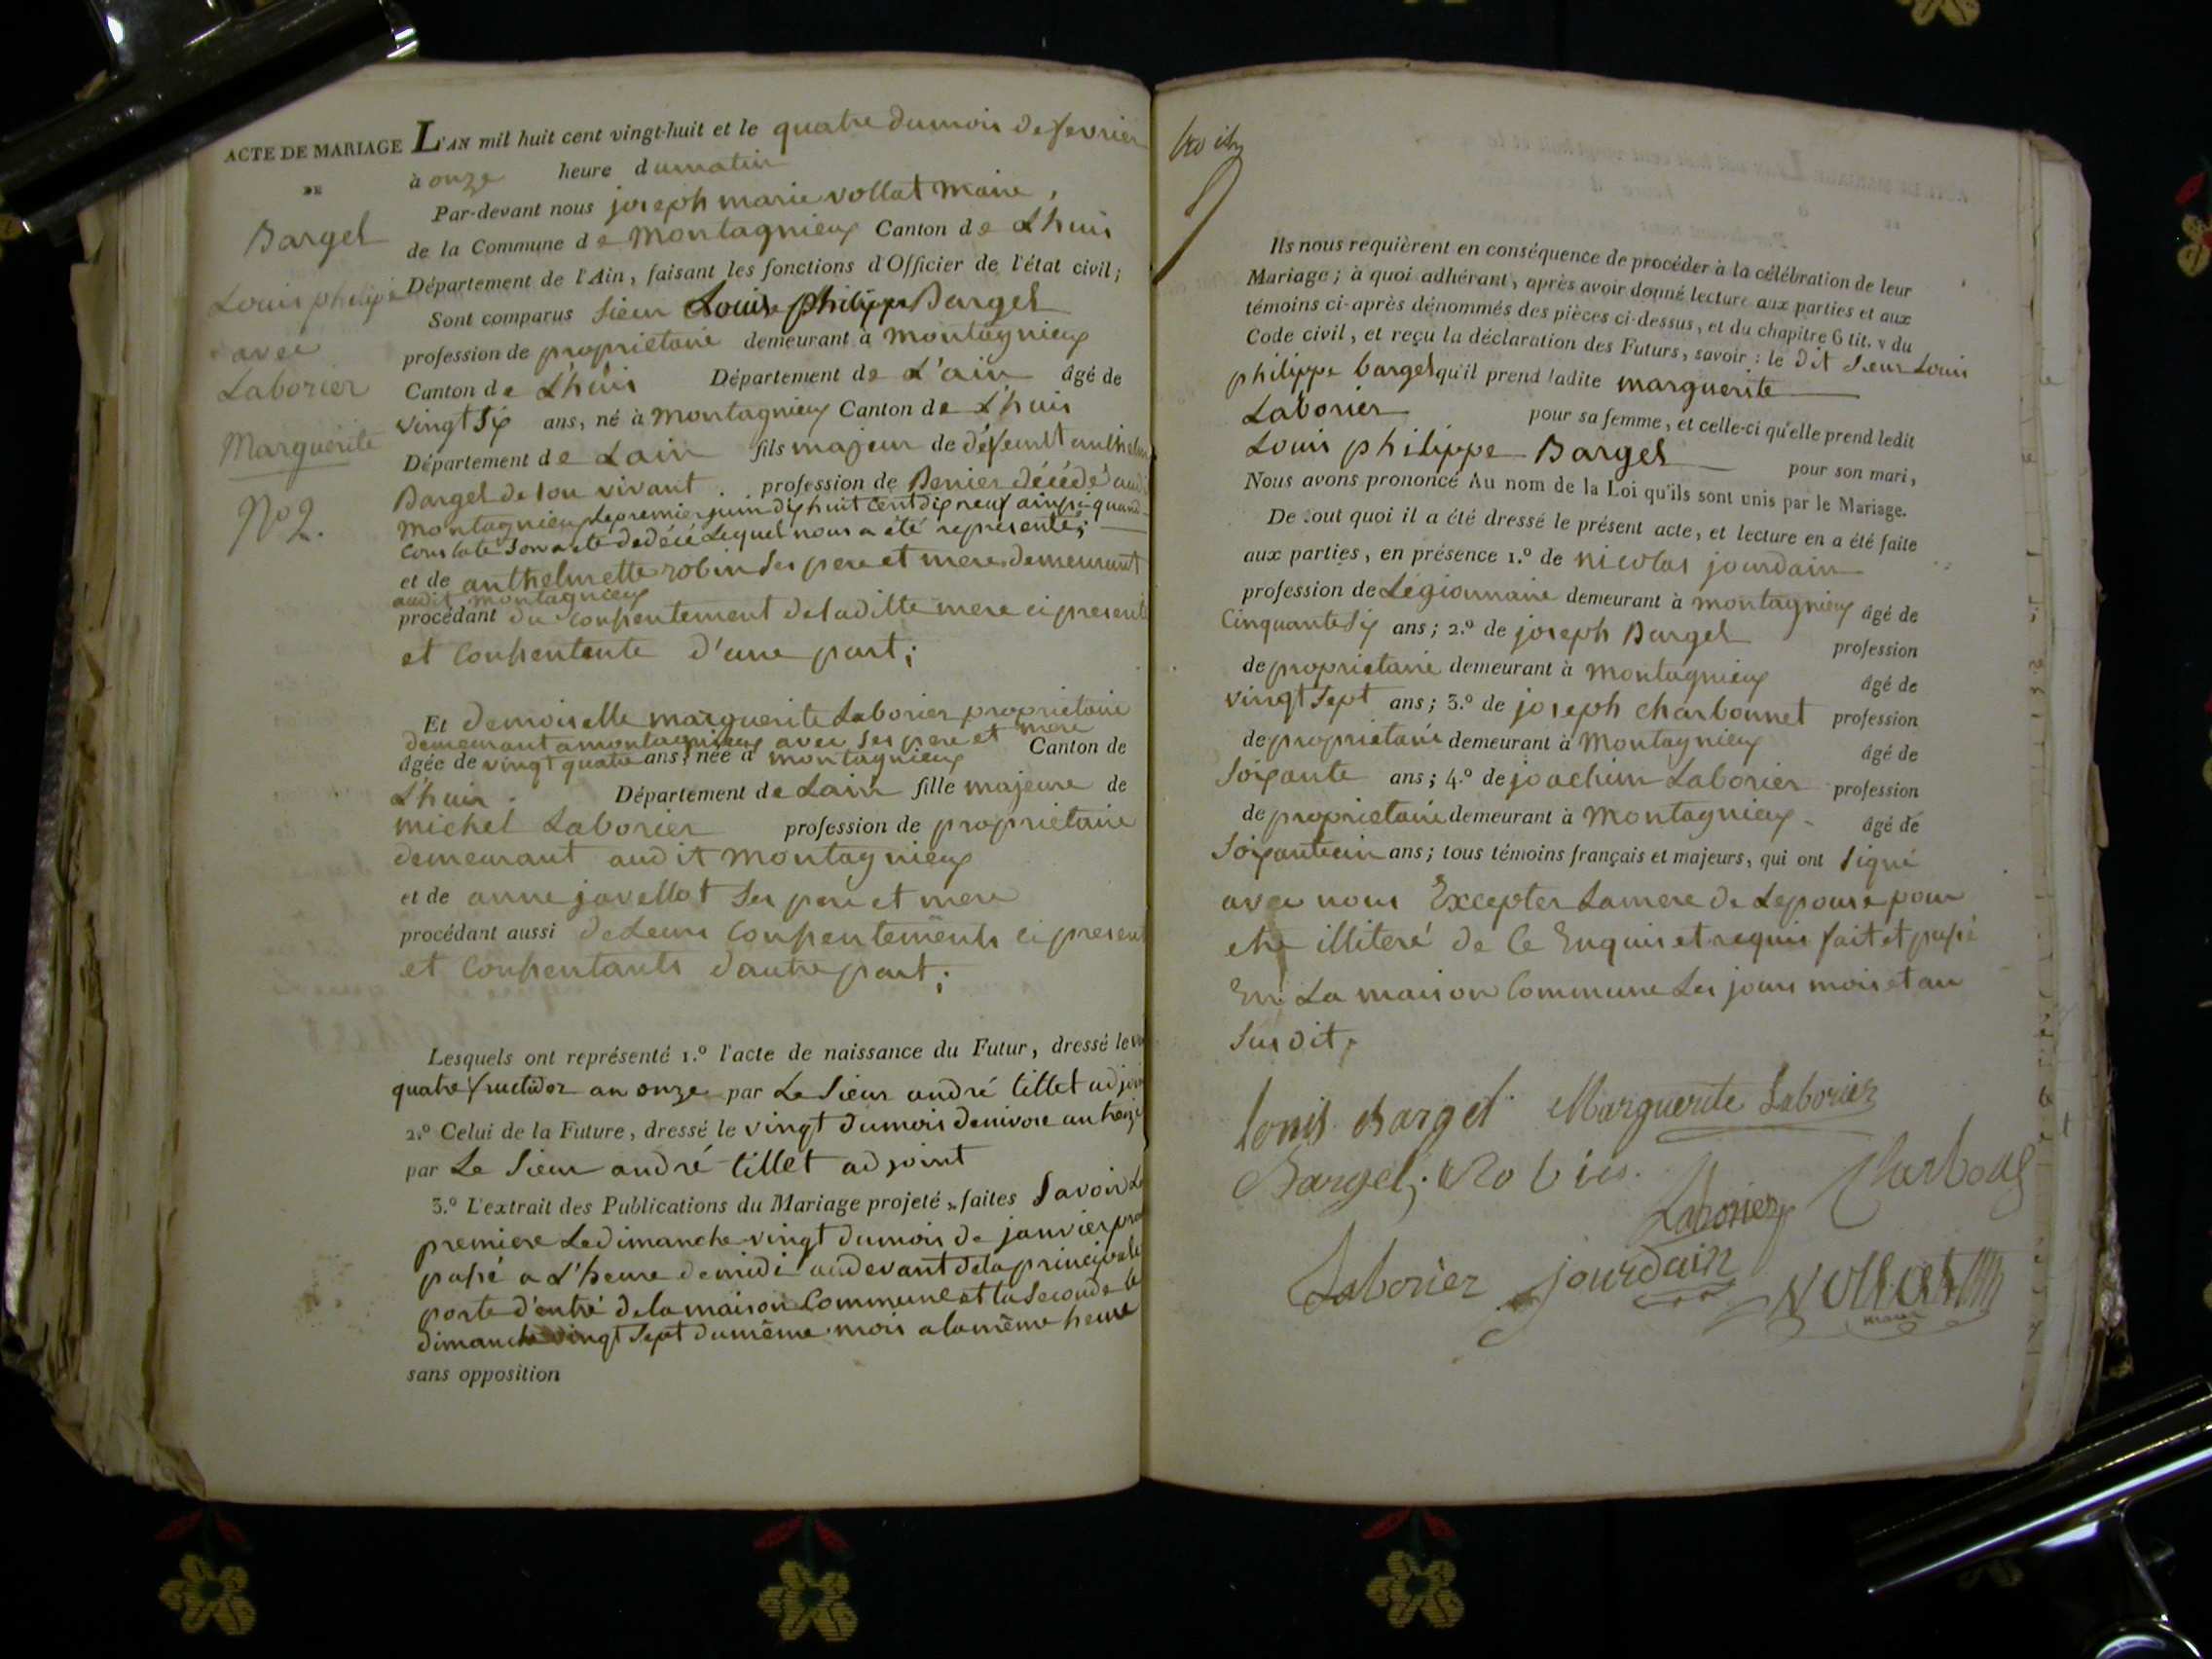 ACTE DE MARIAGE
DE
Bargel
Louis philipe
avec
Laborier
Marguerite
N° 2.
L'AN mil huit cent vingt-huit et le quatre du mois de fevrier
à onze heure du matin
Par-devant nous joseph marie vollat maire,
de la Commune de Montagnieux Canton de L'huis
Département de l'Ain, faisant les fonctions d'Officier de l'état civil;
Sont comparus sieur Louis philippe Bargel
profession de propriétaire demeurant à Montagnieux
Canton de L'huis Département de L'ain âgé de
vingt six ans, né à Montagnieux Canton de L'huis
Département de Lain fils majeur de défeunt anthelme
Bargel de son vivant profession de décédé
montagnieux le premier juin dix huit cent dix neuf ainsi quand
constate son acte de décé lequel nous a été représenté;
et de anthelmette robin ses pere et mere demeurant
audit montagnieux
procédant du consentement de laditte mere ci presente
et consentente d'une part;
Et demoiselle marguerite Laborier propriétaire
demeurant a montagnieux avec ses pere et mere
âgée de vingt quatre ans, née à montagnieux Canton de
L'huis. Département de Lain fille majeure de
michel Laborier profession de propriétaire
demeurant audit Montagnieux
et de anne javellot ses pere et mere
procédant aussi de Leurs consentements ci present
et consentants d'autre part;
Lesquels ont représenté 1.º l'acte de naissance du Futur, dressé le
quatre fructidor an onze par Le Sieur andré tillet adjoint
2.º Celui de la Future, dressé le vingt du mois de nivose an treize
par Le Sieur andré tillet adjoint
3.º L'extrait des Publications du Mariage projeté, faites Savoir La
premiere Le dimanche vingt du mois de janvier
passé a L'heure de midi audevant de la principale
porte d'entré de la maison Commune et la Seconde le
dimanche vingt sept du même mois a la même heure
sans opposition
Ils nous requièrent en conséquence de procéder à la célébration de leur
Mariage; à quoi adhérant, après avoir donné lecture aux parties et aux
témoins ci-après dénommés des pièces ci-dessus, et du chapitre 6 tit. v du
Code civil, et reçu la déclaration des Futurs, savoir: le dit Sieur Louis
philippe bargel qu'il prend ladite marguerite
Laborier pour sa femme, et celle-ci qu'elle prend ledit
Louis philippe Bargel pour son mari,
Nous avons prononcé Au nom de la Loi qu'ils sont unis par le Mariage.
De tout quoi il a été dressé le présent acte, et lecture en a été faite
aux parties, en présence 1.º de nicolas jourdain
profession de Légionnaire demeurant à montagnieux âgé de
Cinquante six ans; 2.º de joseph Bargel profession
de propriétaire demeurant à Montagnieux âgé de
vingt sept ans; 3.º de joseph charbonnet profession
de propriétaire demeurant à Montagnieux âgé de
soixante ans; 4.º de joachim Laborier profession
de propriétaire demeurant à Montagnieux âgé de
ans; tous témoins français et majeurs, qui ont signé
avec nous Excepter La mere de Lepouse pour
etre illiteré de Ce Enquis et requis fait et passé
En La maison Commune Les jours mois et an
Susdit.
Louis Bargel Marguerite Laborier
Bargel; Robin.
Laborier
Laborier jourdain vollat
maire